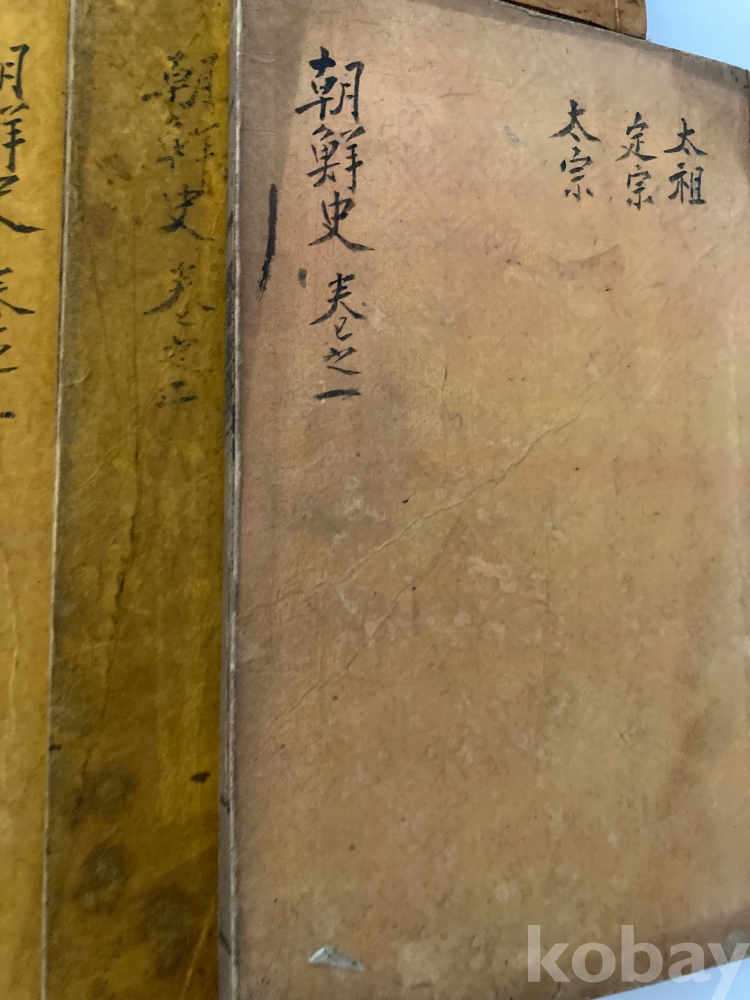 太祖
定宗
太宗
朝鮮史 卷之一
朝鮮史 卷之二
朝鮮史 卷之
kobay